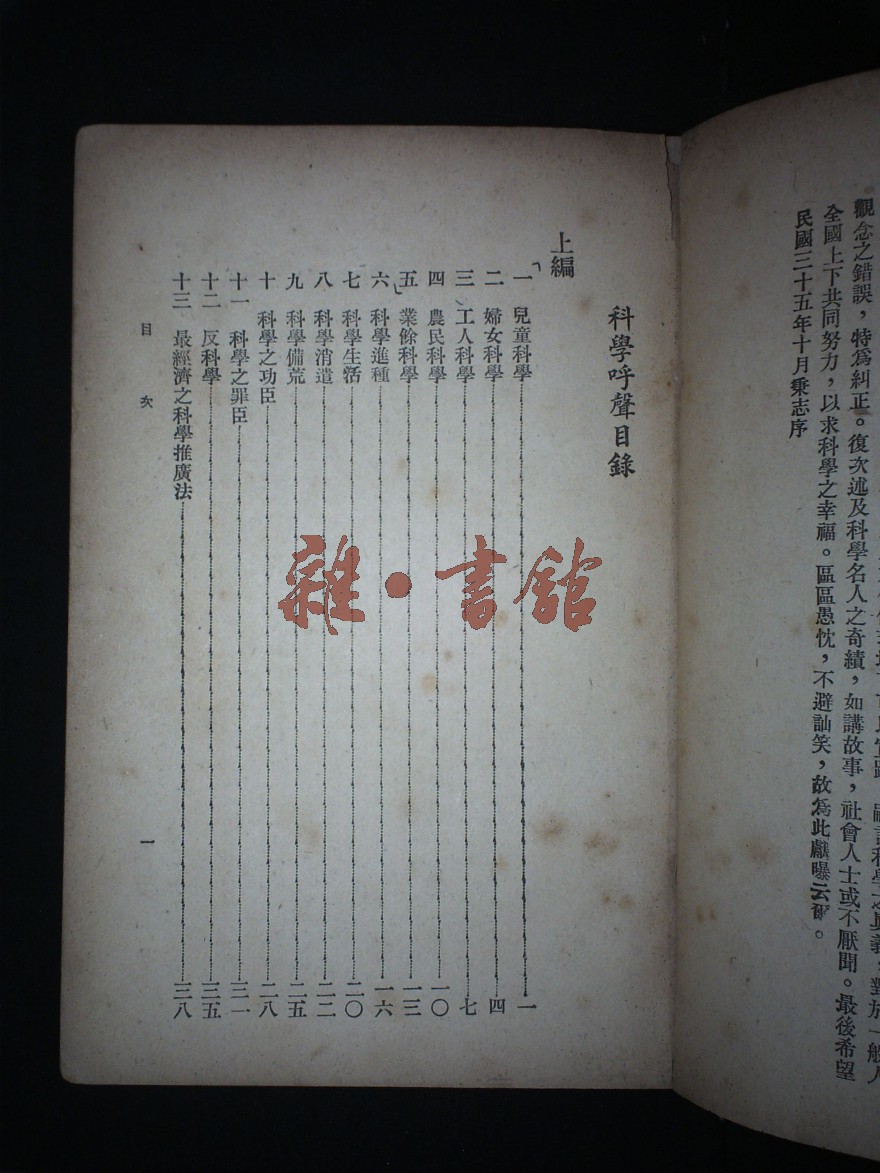 觀念之錯誤，特為糾正。復次述及科學名人之奇績，如講故事，社會人士或不厭聞。最後希望
全國上下共同努力，以求科學之幸福。區區愚忱，不避訕笑，故為此獻曝云爾。
民國三十五年十月秉志序
科學呼聲目錄
上編
一 兒童科學 一
二 婦女科學 四
三 工人科學 七
四 農民科學 一〇
五 業餘科學 一三
六 科學進種 一六
七 科學生活 二〇
八 科學消遣 二二
九 科學備荒 二五
十 科學之功臣 二八
十一 科學之罪臣 三一
十二 反科學 三五
十三 最經濟之科學推廣法 三八
目次
一
雜·書館